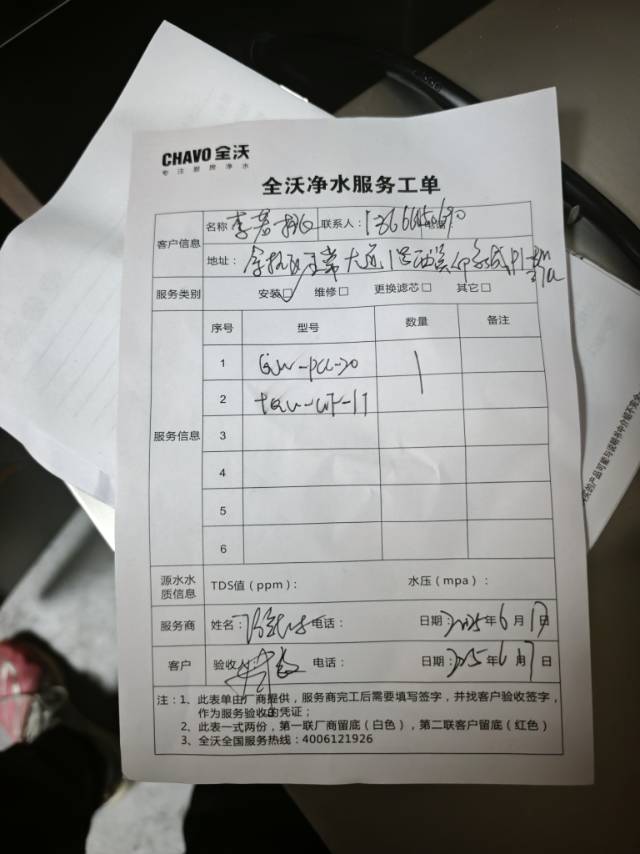 CHAVO 全沃
专注厨房净水
全沃净水服务工单
客户信息
名称 李 联系人:
地址: 大道1号
服务类别 安装☑ 维修□ 更换滤芯□ 其它□
服务信息
序号 型号 数量 备注
1 GW-PCL-20 1
2
3
4
5
6
源水水质信息 TDS值(ppm): 水压(mpa):
服务商 姓名: 电话: 日期:2025年6月17日
客户 验收 电话: 日期:2025年6月17日
注:1、此表单由厂商提供,服务商完工后需要填写签字,并找客户验收签字,
作为服务验收的凭证;
2、此表一式两份,第一联厂商留底(白色),第二联客户留底(红色)
3、全沃全国服务热线:4006121926